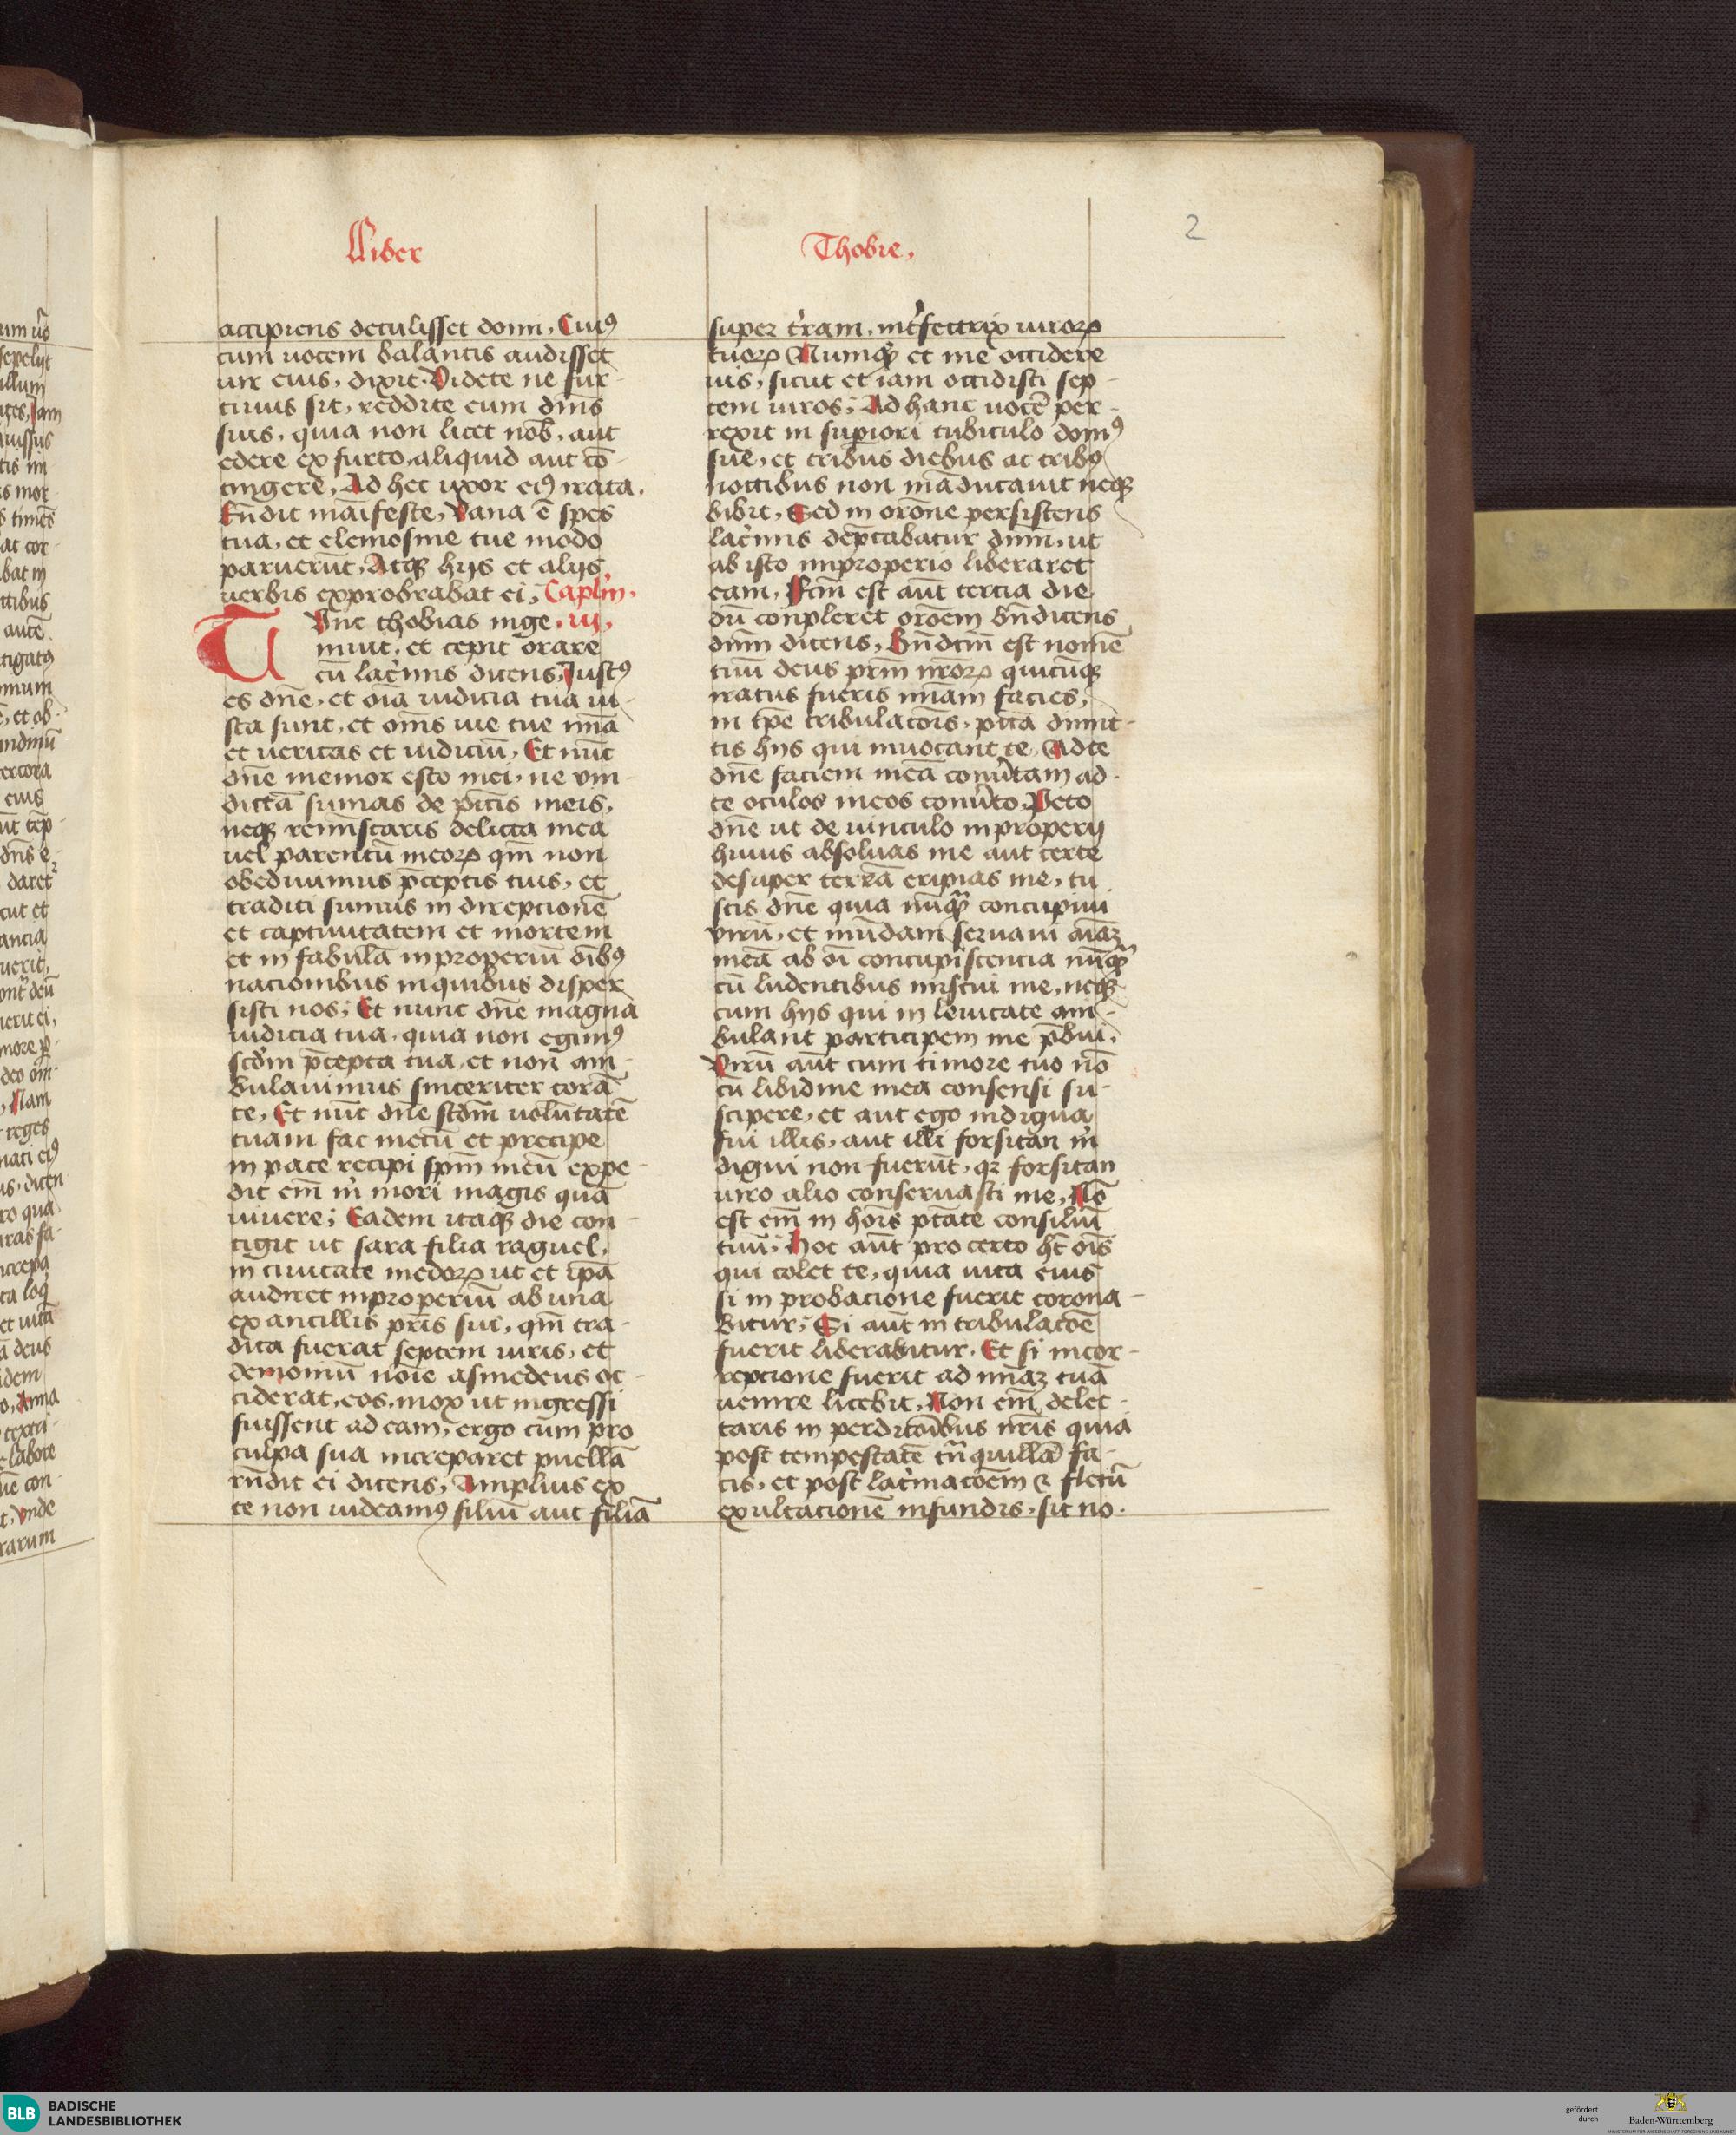 Liber
Thobie.
2
accipiens detulisset domi, Cuiꝰ
cum uocem balantis audisset
uir eius, dixit. Videte ne fur-
tiuus sit, reddite eum dn̄is
suis, quia non licet nob̄, aut
edere ex furto, aliquid aut cō-
tingere, Ad hec uxor eiꝰ irata.
Rn̄dit māifeste, Vana ē spes
tua, et elemosine tue modo
paruerūt, Atqꝫ hijs et alijs
uerbis exprobrabat ei, Caplm̄.
Tunc thobias inge. iii.
muit, et cepit orare
cū lac̓imis dicens, Iustꝰ
es dn̄e, et oīa iudicia tua iu-
sta sunt, et om̄s uie tue mīa
et ueritas et iudiciū, Et nūc
dn̄e memor esto mei, ne vin-
dictā sumas de pctīs meis,
neqꝫ reminīscaris delicta mea
uel parentū meoꝝ qm̄ non
obediuimus p̄ceptis tuis, et
traditi sumus in direpcionē
et captiuitatem et mortem
et in fabulā inproperiū oībꝰ
nacionibus in quibus disper
sisti nos; Et nunc dn̄e magna
iudicia tua, quia non egimꝰ
scd̄m p̄cepta tua, et non am-
bulauimus sinceriter corā
te, Et nūc dn̄e scd̄m uolūtatē
tuam fac mecū et precipe
in pace recipi spm̄ meū expe-
dit em̄ m̓ mori magis quā
uiuere; Eadem itaqꝫ die con-
tigit ut sara filia raguel,
in ciuitate medoꝝ ut et ip̄a
audiret inproperiū ab una
ex ancillis pr̄is sui, qm̄ tra-
dita fuerat septem uiris, et
demoniū noīe asmedeus oc-
ciderat, eos, mox ut ingressi
fuissent ad eam, ergo cum pro
culpa sua increparet puellā
rn̄dit ei dicens, Amplius ex
te non uideamꝰ filiū aut filiā
super t̓ram, int̓fectrix uiroꝝ
tuoꝝ Numqͣꝫ et me occidere
uis, sicut et iam occidisti sep-
tem uiros; Ad hanc uocē per-
rexit in sup̱iori cubiculo domꝰ
sue, et tribus diebus ac tribꝰ
noctibus non māducauit neqꝫ
bibit, Sed in orōne persistens
lac̓imis dep̄cabatur dnm̄, ut
ab isto improperio liberaret
eam, Fcm̄ est aūt tercia die
dū conpleret orōem bn̄dicens
dnm̄ dicens, Bn̄dcm̄ est nomē
tuū deus prm̄ nr̄oꝝ qui cūqꝫ
iratus fueris mīam facies,
in tp̄e tribulacōis, pctā dimit-
tis hijs qui inuocant te, Ad te
dn̄e faciem meā conu̓tam ad-
te oculos meos conu̓to, Peto
dn̄e ut de uinculo inproperij
huius absoluas me aut certe
desuper terrā eripias me, tu
scis dn̄e quia nūqͣꝫ concupiui
virū, et mūdam seruaui aīaꝫ
meā ab oī concupiscencia nūqͣꝫ
cū ludentibus miscui me, neqꝫ
cum hijs qui in leuitate am-
bulant participem me p̄bui,
Virū aūt cum timore tuo nō
cū libidine mea consensi su-
scipere, et aut ego indigna
fui illis, aut illi forsitan m̓
digni non fuerūt, qꝛ forsitan
uiro alio conseruasti me, Nō
est em̄ in hoīs ptāte consiliū
tuū; Hoc aūt pro certo hꝫ oīs
qui colet te, quia uita eius
si in probacione fuerit corona-
bitur; Si aūt in tribulacōe
fuerit liberabitur. Et si in cor-
repcione fuerit ad mīaꝫ tuā
uenire licebit, Non em̄ delec-
taris in perdicōibus nr̄is quia
post tempestatē tnͣquillā fa-
cis, et post lac̓imacōem ⁊ fletū
exultacionē infundis, sit no-
BLB BADISCHE
LANDESBIBLIOTHEK
gefördert
durch
Baden-Württemberg